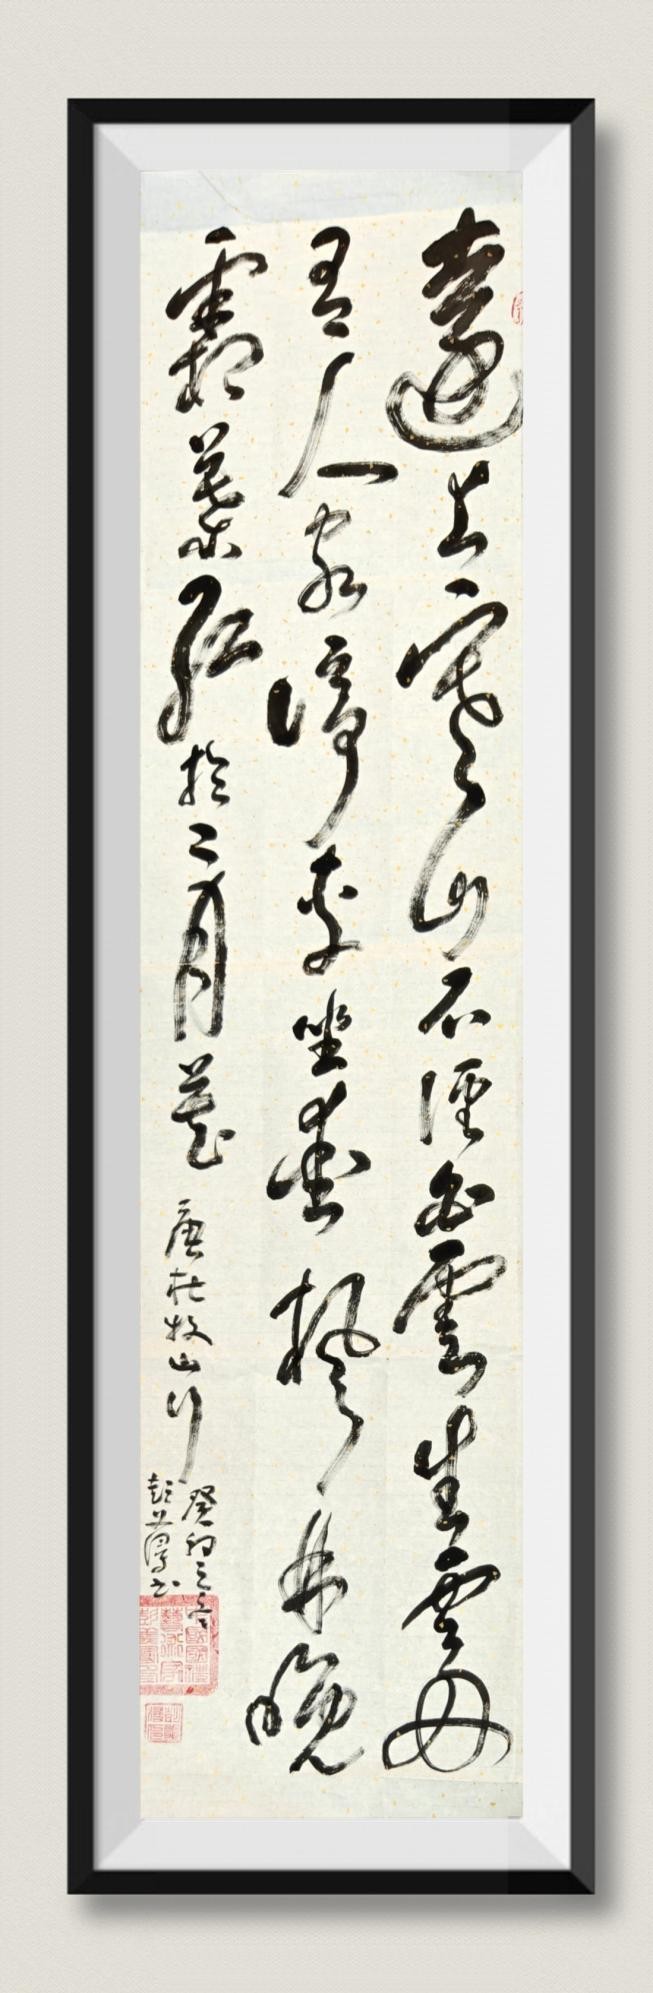 遠上寒山石徑白雲生處
有人家停車坐愛楓林晚
霜葉紅於二月花 唐杜牧山行
癸卯之
彭 书